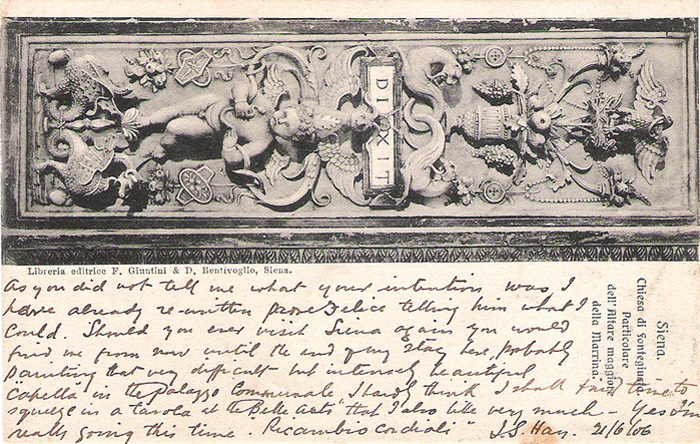 DIXIT
Libreria editrice F. Giuntini & D. Bentivoglio, Siena.
Siena.
Chiesa di Fontegiusta
Particolare
dell'Altare maggiore
della Marrina
As you did not tell me what your intention was I
have already re-written telling him what I
could. Should you ever visit Siena again you would
find me from now until the end of my stay here, probably
painting that very difficult but intensely beautiful
"Capella" in the Palazzo Communale, I hardly think I shall find time to
squeeze in a tavola at the Belle Arti, that I also like very much - Yes I'm
really going this time - Ricambio cordiali J.S. Hay. 21/6/06